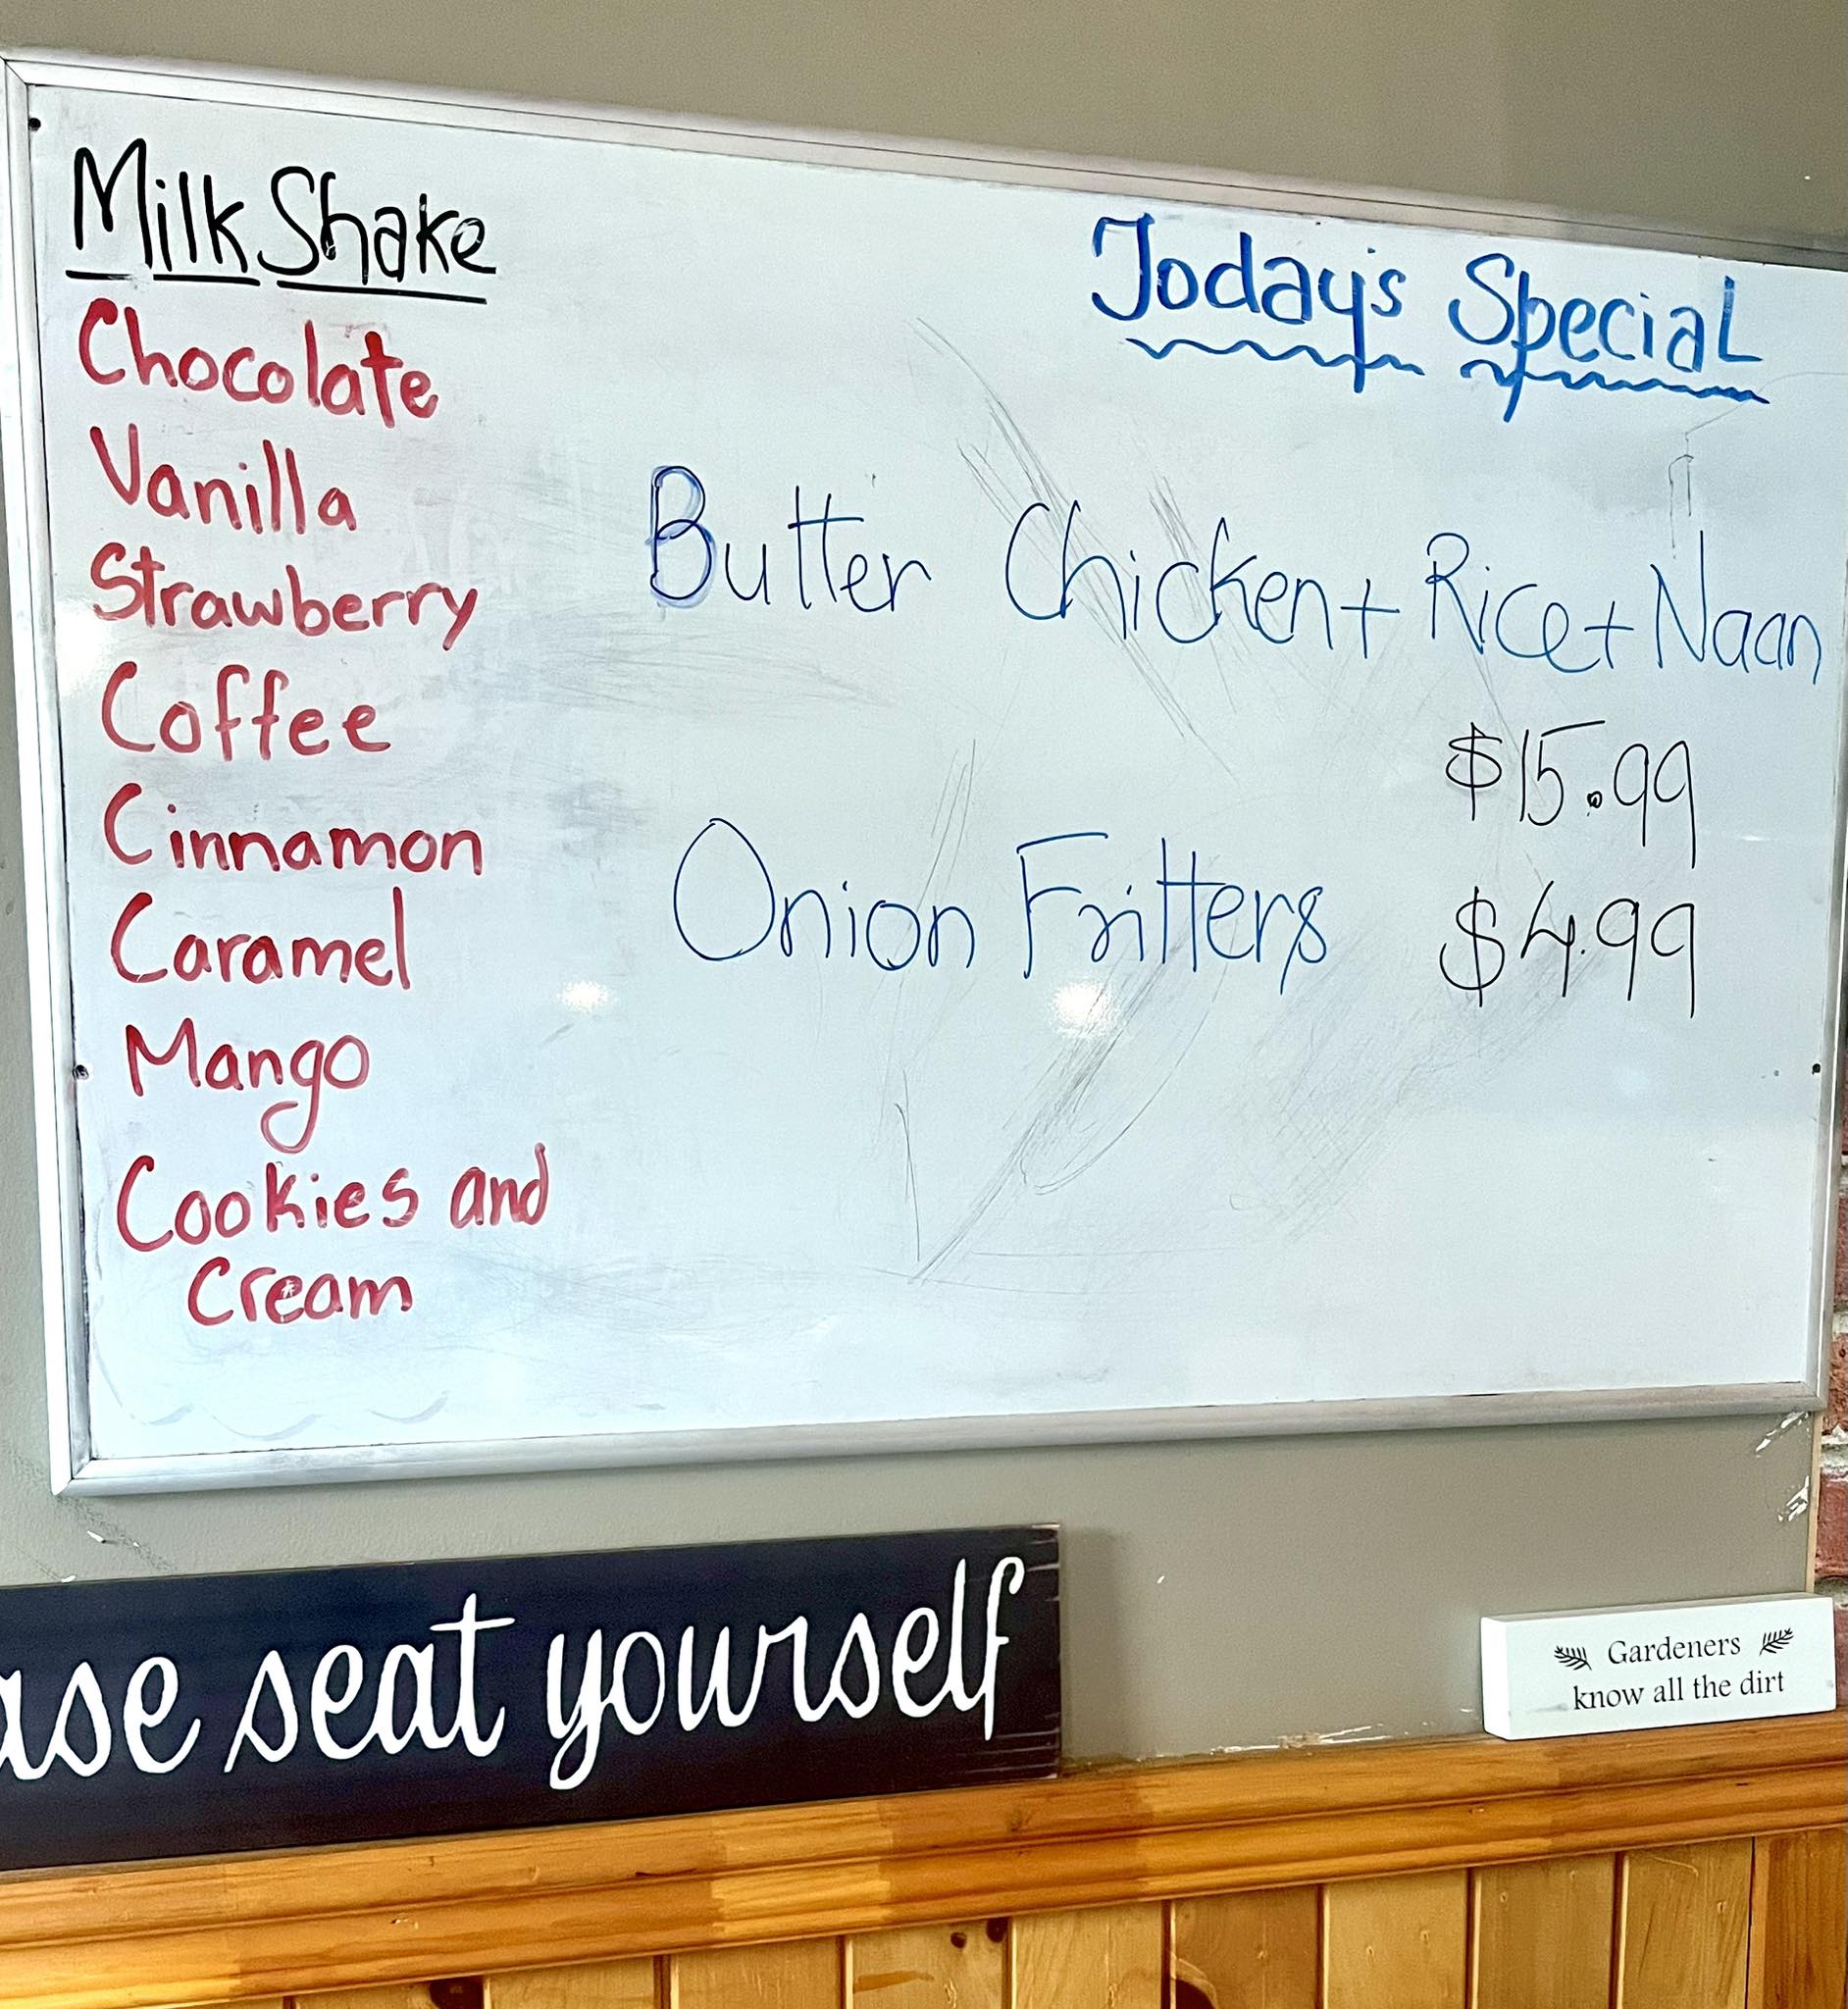 Milk Shake
Chocolate
Vanilla
Strawberry
Coffee
Cinnamon
Caramel
Mango
Cookies and
Cream
Today's Special
Butter Chicken + Rice + Naan
$15.99
Onion Fritters $4.99
ase seat yourself
Gardeners
know all the dirt